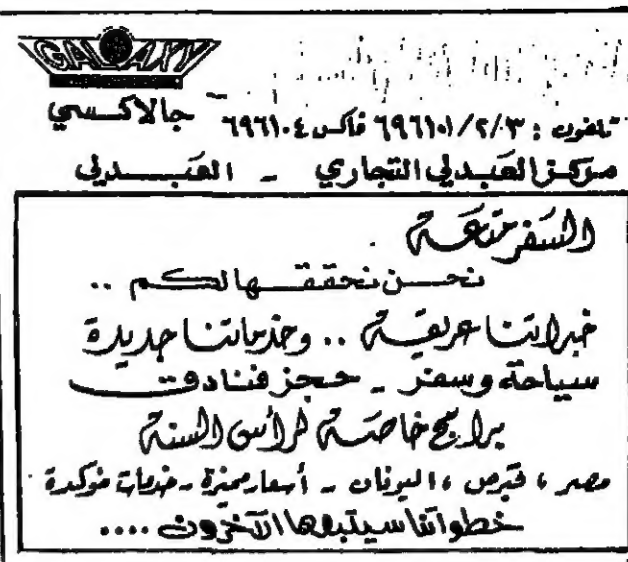 GALAXY
جالاكسي
تلفون : ٦٩٦١٠١/٢/٣ فاكس ٦٩٦١٠٤
مركز العبدلي التجاري - العبدلي
السفر متعة
نحن نحققها لكم ..
خبراتنا عريقة .. وخدماتنا جديدة
سياحة وسفر - حجز فنادق
برامج خاصة لرأس السنة
مصر ، قبرص ، اليونان - أسعار مميزة - خدمات مؤكدة
خطواتنا سيتبعها الآخرون ....